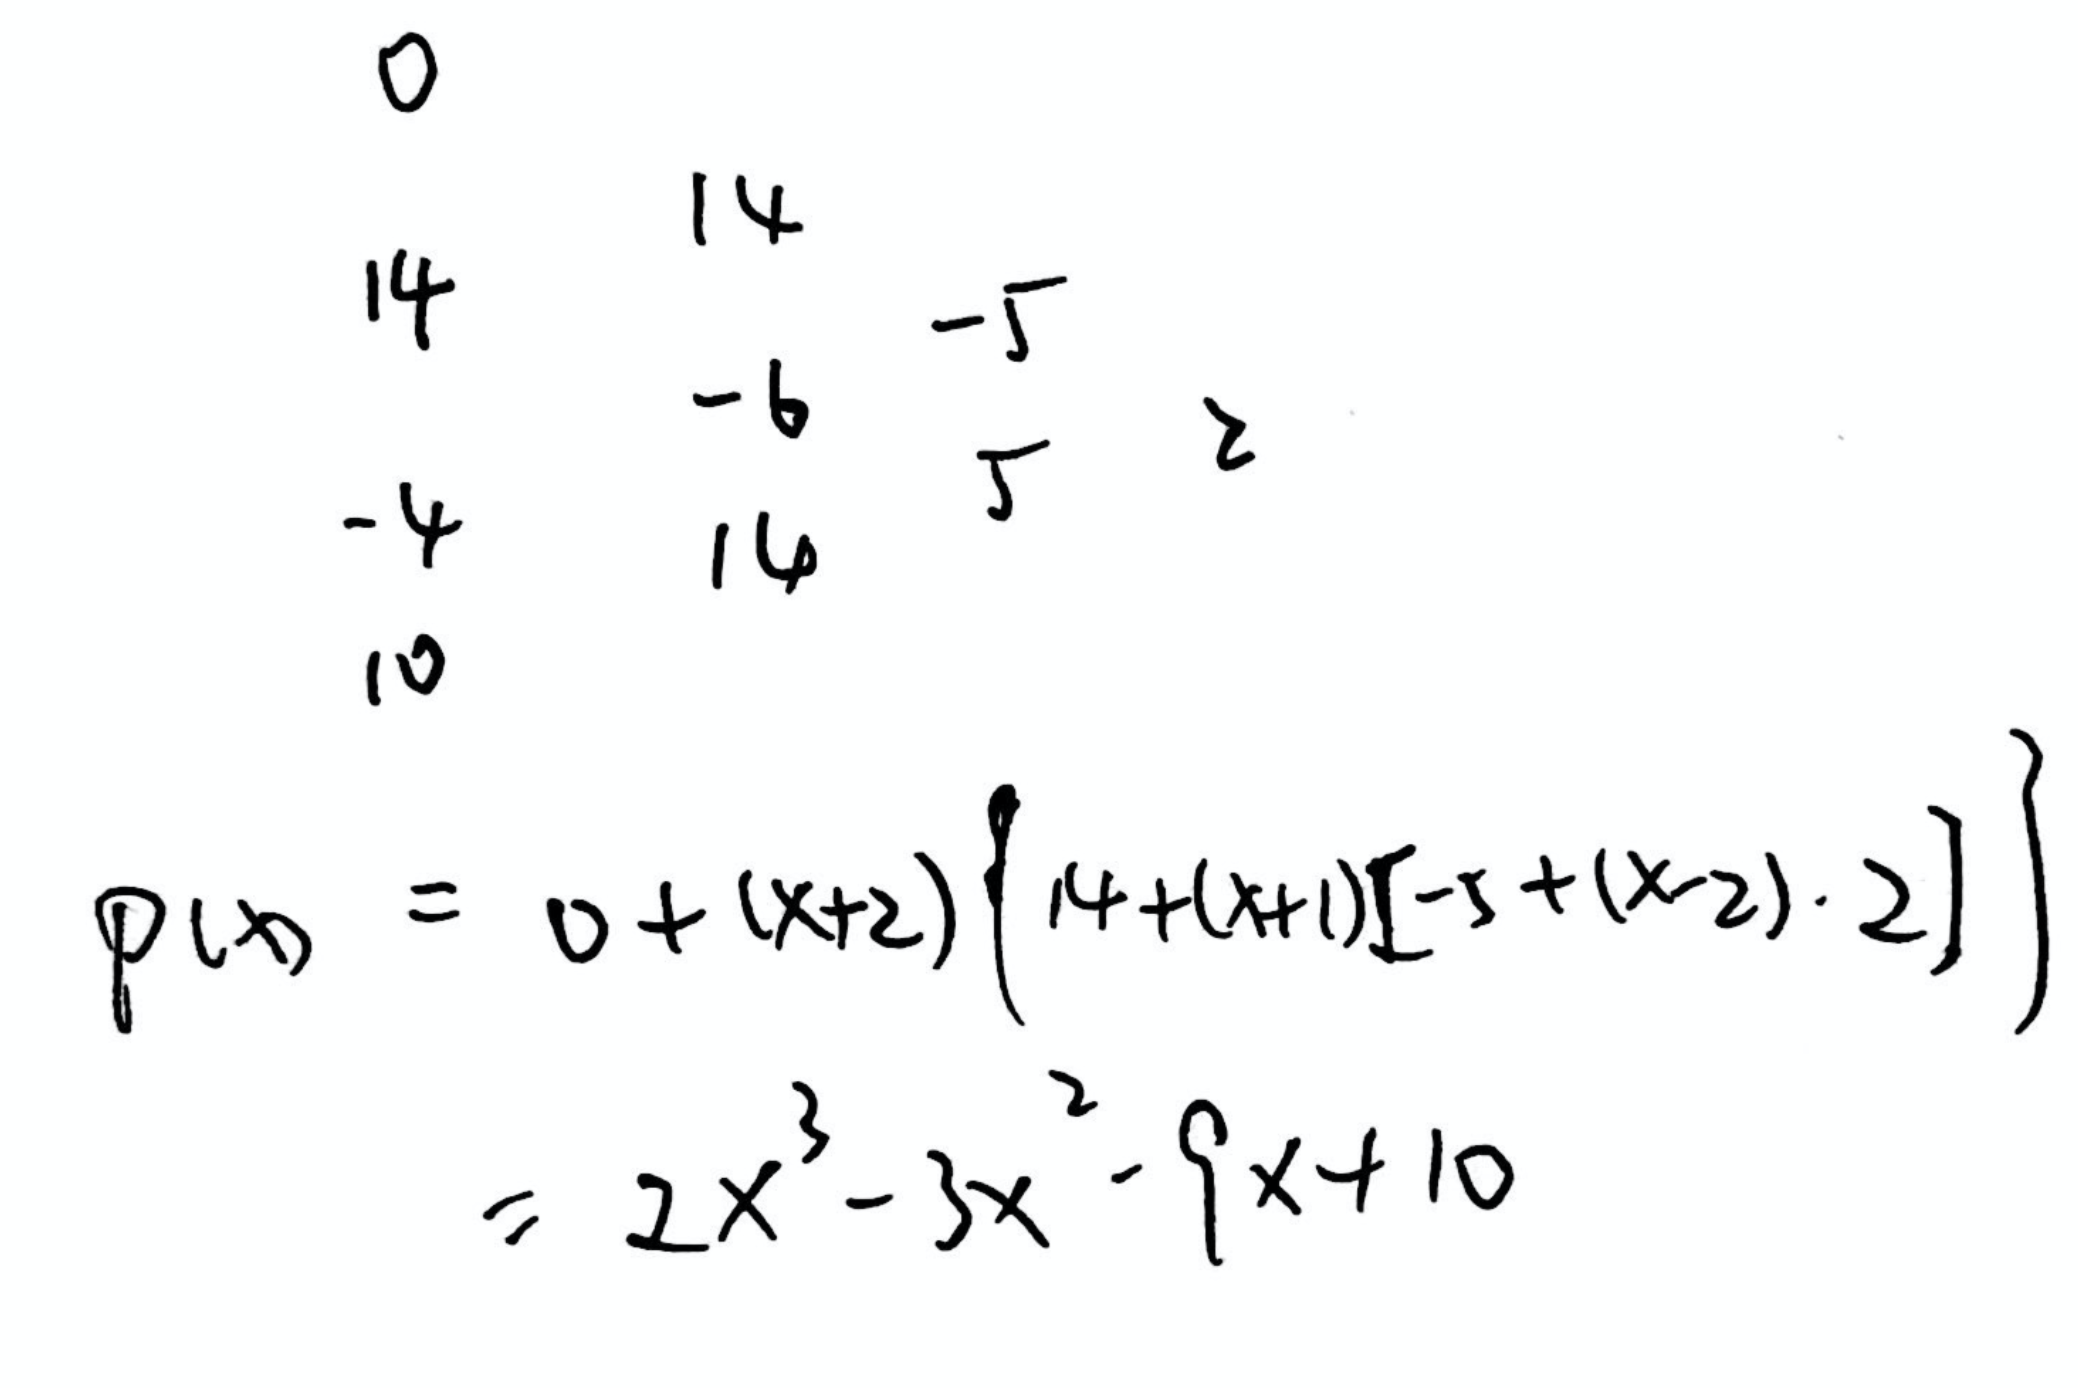 0
14
14
-5
-6
2
5
-4
14
10
p(x) = 0 + (x+2){14+(x+1)[-5+(x-2)·2]}
= 2x³ - 3x² - 9x + 10